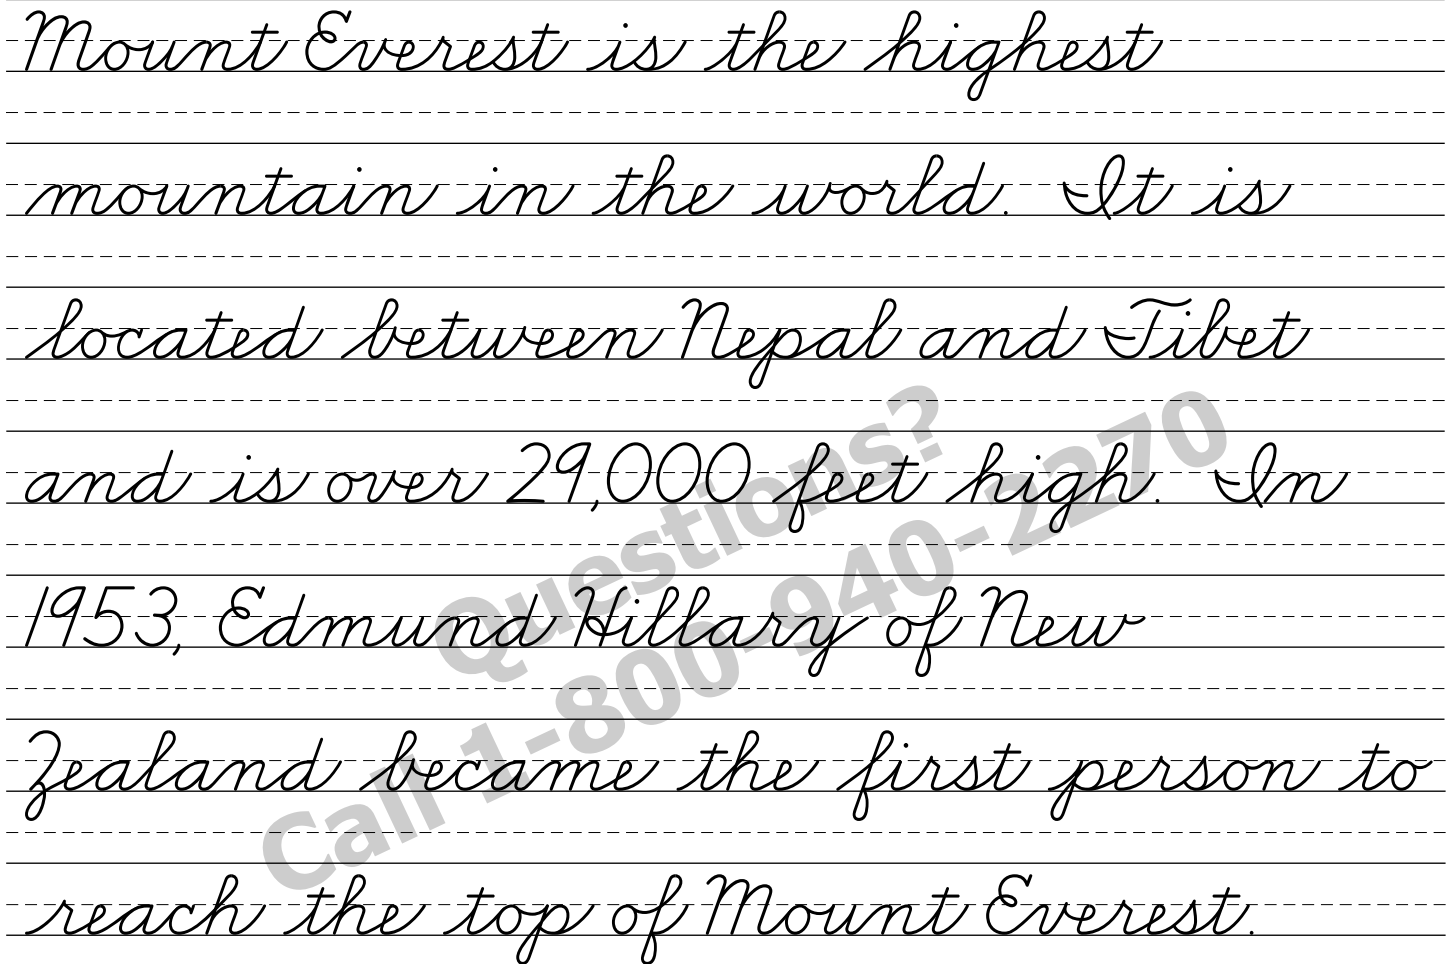 Mount Everest is the highest
mountain in the world. It is
located between Nepal and Tibet
and is over 29,000 feet high. In
1953, Edmund Hillary of New
Zealand became the first person to
reach the top of Mount Everest.
Questions?
Call 1-800-940-2270